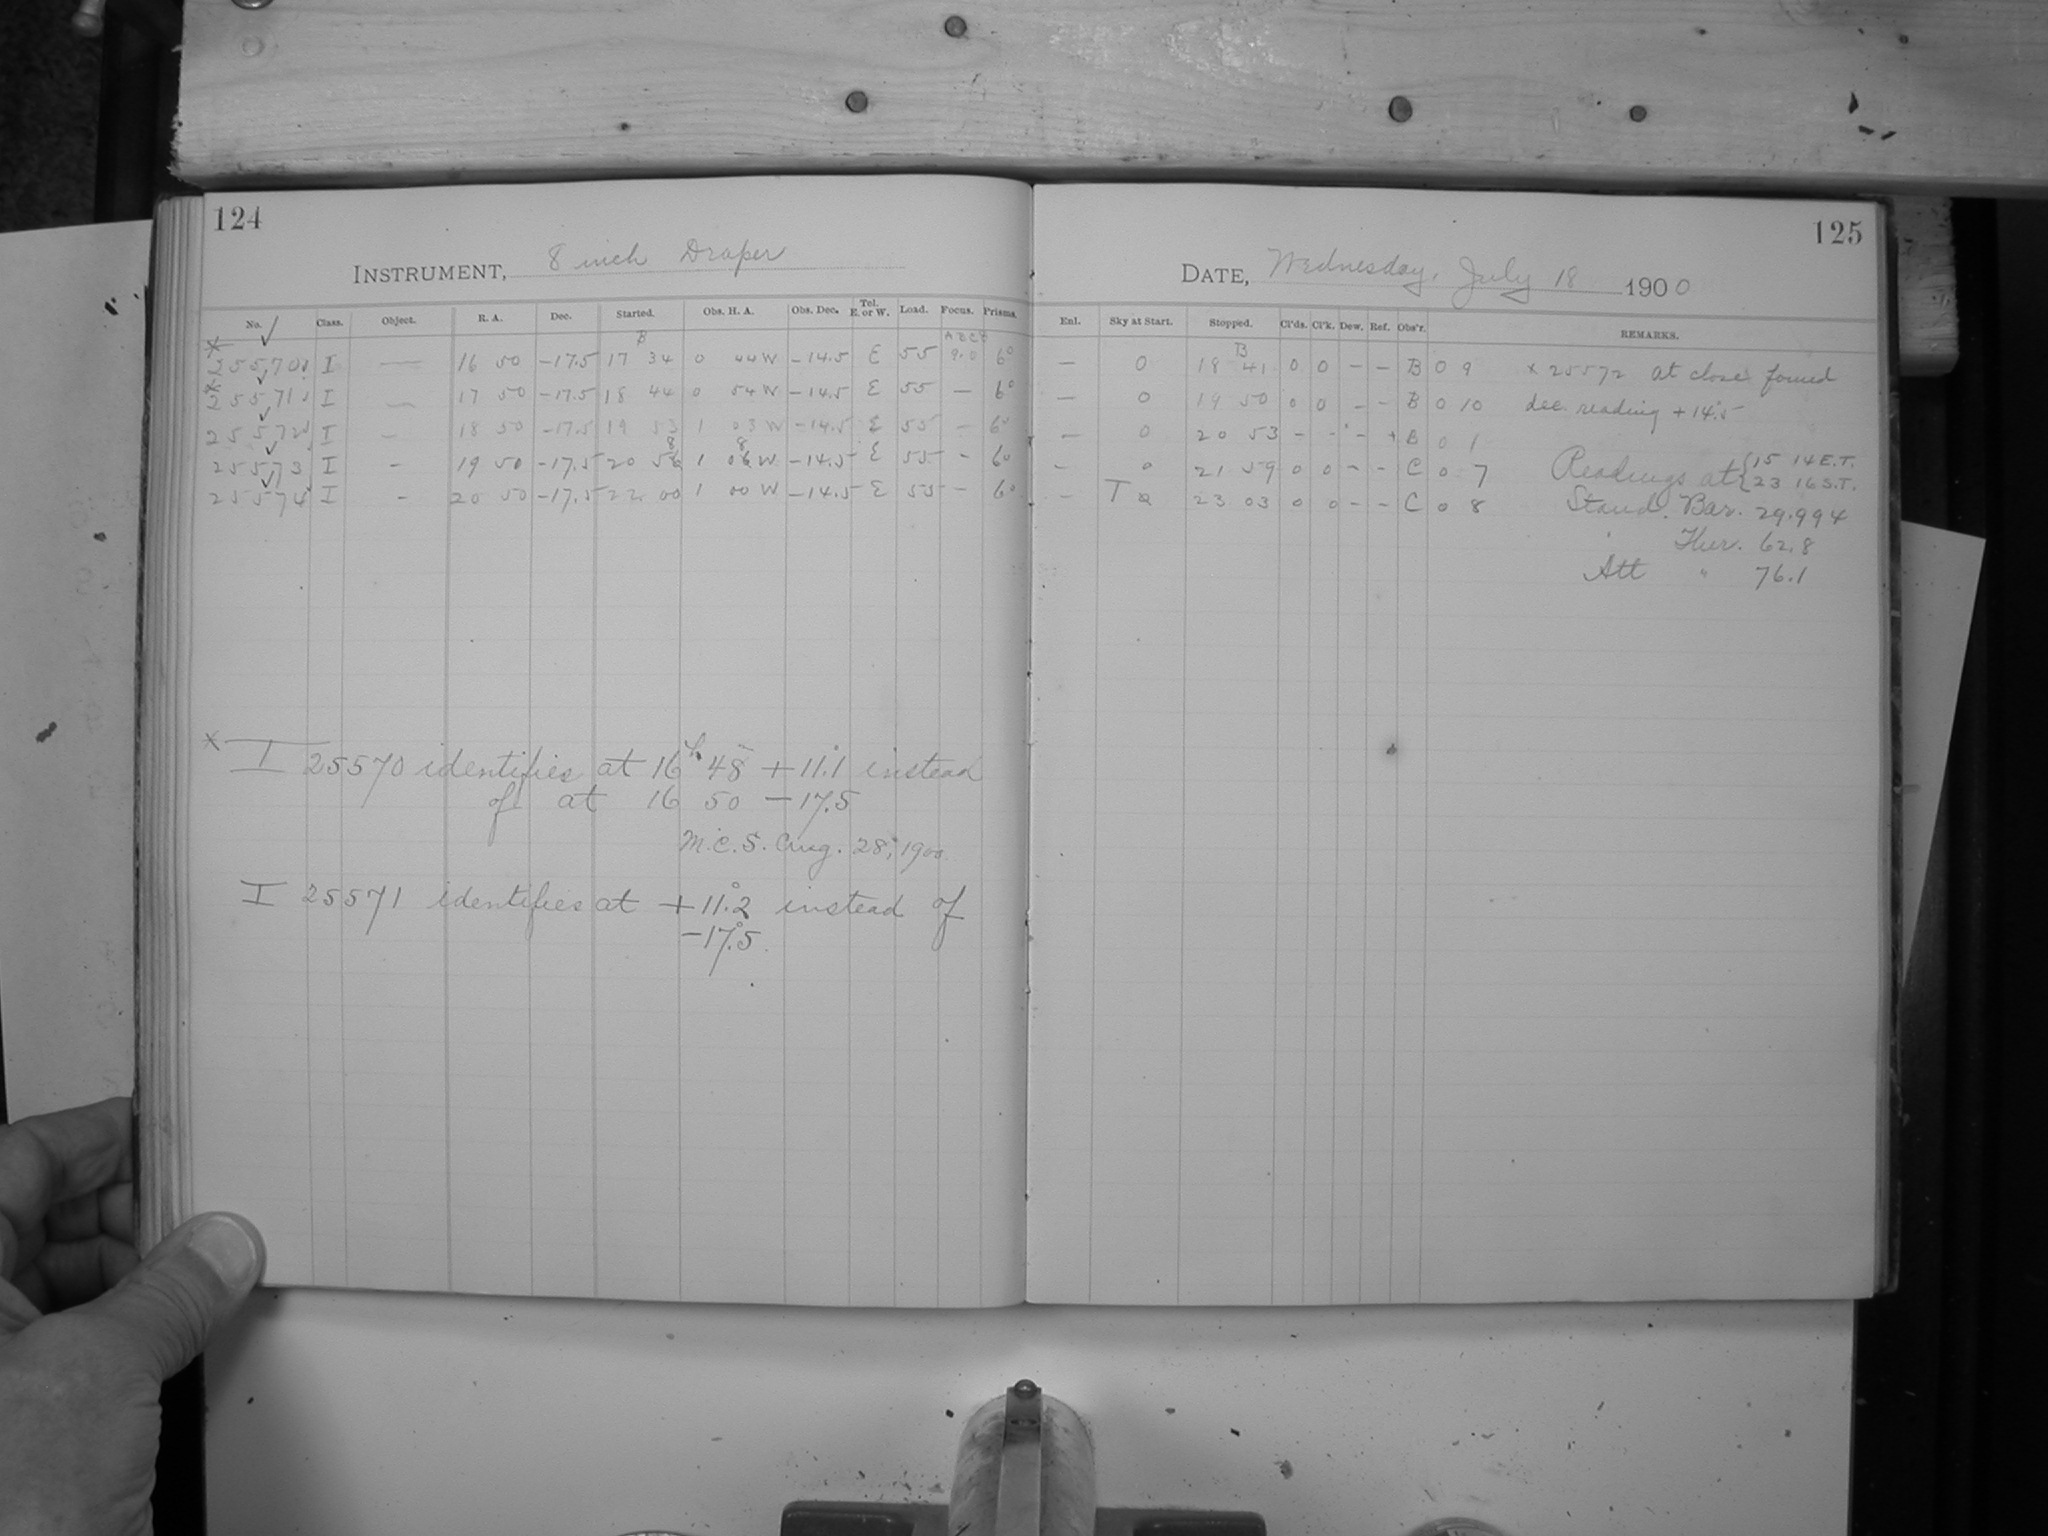 124
INSTRUMENT, 8 inch Draper
No. ✓ Class. Object. R. A. Dec. Started. Obs. H. A. Obs. Dec. Tel. E. or W. Load. Focus. Prisms.
× 25570 ✓ I — 16 50 -17.5 17 34 0 44 W -14.5 E 55 9.0 6°
× 25571 ✓ I — 17 50 -17.5 18 44 0 54 W -14.5 E 55 — 6°
25572 ✓ I — 18 50 -17.5 19 53 1 03 W -14.5 E 55 — 6°
25573 ✓ I - 19 50 -17.5 20 56 1 06 W -14.5 E 55 - 6°
25574 ✓ I - 20 50 -17.5 22 00 1 00 W -14.5 E 55 - 6°
× I 25570 identifies at 16h 48 +11°.1 instead
of at 16 50 -17.5
M.C.S. Aug. 28, 1900.
I 25571 identifies at +11°.2 instead of
-17°.5.
125
DATE, Wednesday, July 18 1900
Enl. Sky at Start. Stopped. Cl'ds. Cl'k. Dew. Ref. Obs'r. REMARKS.
— 0 18 41 0 0 - - B 0 9 × 25572 at close found
— 0 19 50 0 0 - - B 0 10 dec. reading +14.5
— 0 20 53 - - - + B 0 1
- 0 21 59 0 0 - - C 0 7 Readings at { 15 14 E.T.
23 16 S.T.
- T 23 03 0 0 - - C 0 8 Stand. Bar. 29.994
Ther. 62.8
Att " 76.1